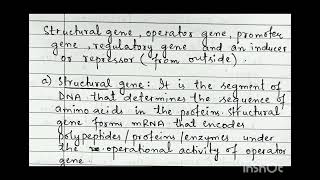 Structural gene, operator gene, promoter
gene, regulatory gene and an inducer
or repressor (from outside).
a) Structural gene: It is the segment of
DNA that determines the sequence of
amino acids in the proteins. Structural
gene forms mRNA that encodes
polypeptides/proteins/enzymes under
the operational activity of operator
gene.
InShOt